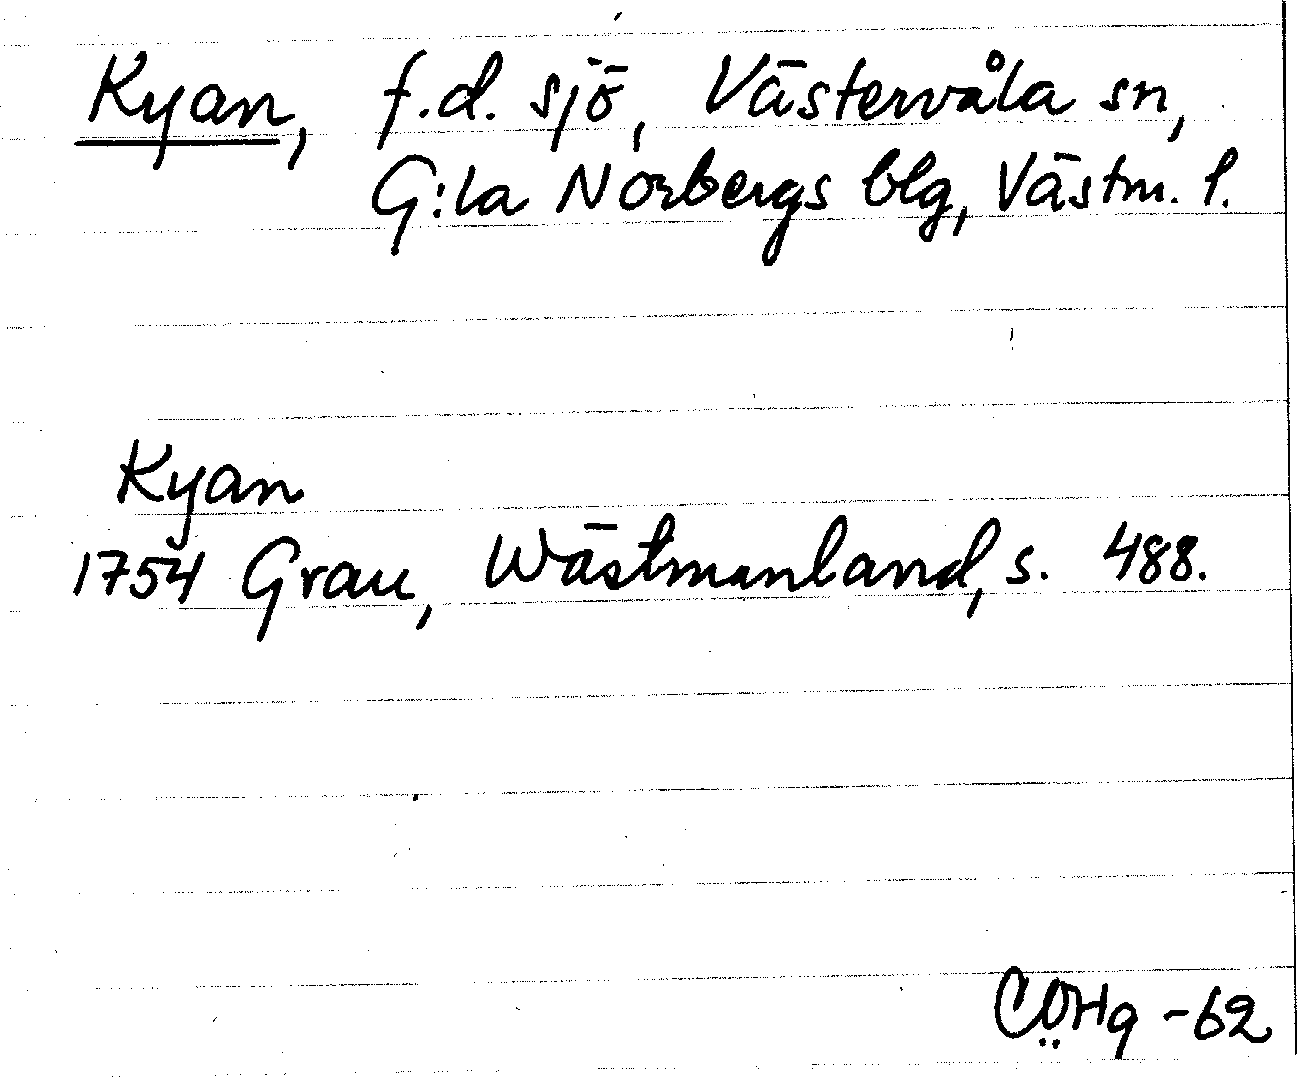 Kyan, f.d. sjö, Västervåla sn,
G:la Norbergs blg, Västm. l.
Kyan
1754 Grau, Wästmanland, s. 488.
CÖHg -62